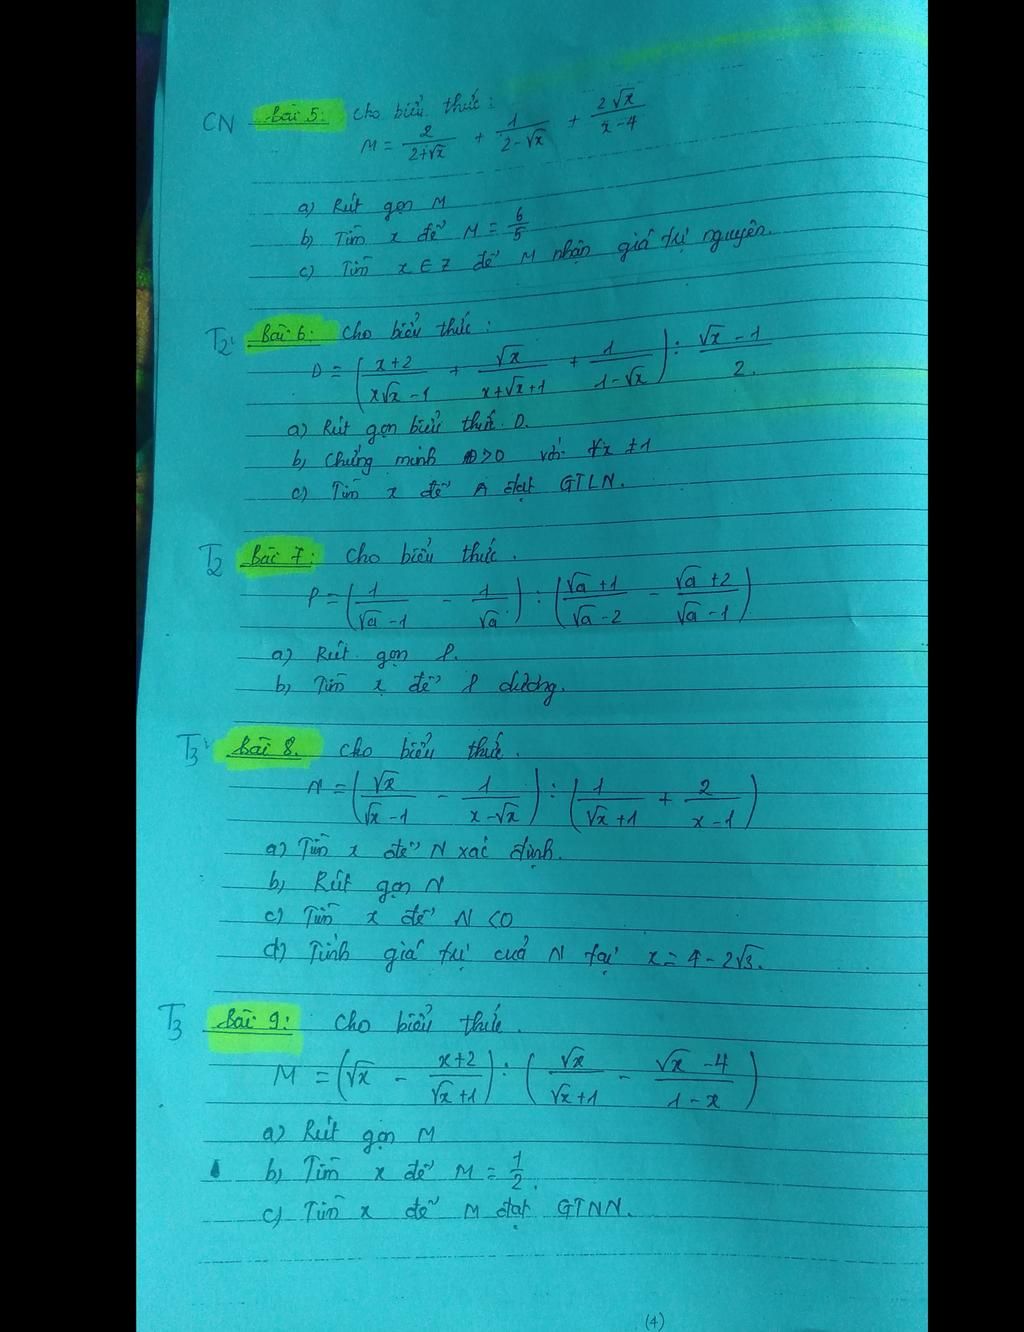 CN Bài 5: Cho biểu thức:
M = 2/(2+√x) + 1/(2-√x) + 2√x/(x-4)
a) Rút gọn M
b) Tìm x để M = 6/5
c) Tìm x ∈ Z để M nhận giá trị nguyên.
T2' Bài 6: Cho biểu thức:
D = ((x+2)/(x√x-1) + √x/(x+√x+1) + 1/(1-√x)) : (√x-1)/2.
a) Rút gọn biểu thức D.
b) Chứng minh D>0 với ∀x ≠1
c) Tìm x để A đạt GTLN.
T2 Bài 7: Cho biểu thức.
P = (1/(√a-1) - 1/√a) : ((√a+1)/(√a-2) - (√a+2)/(√a-1))
a) Rút gọn P.
b) Tìm x để P dương.
T3' Bài 8. Cho biểu thức.
N = (√x/(√x-1) - 1/(x-√x)) : (1/(√x+1) + 2/(x-1))
a) Tìm x để N xác định.
b) Rút gọn N
c) Tìm x để N <0
d) Tính giá trị của N tại x = 4-2√3.
T3 Bài 9: Cho biểu thức.
M = (√x - (x+2)/(√x+1)) : (√x/(√x+1) - (√x-4)/(1-x))
a) Rút gọn M
b) Tìm x để M = 1/2.
c) Tìm x để M đạt GTNN.
(4)